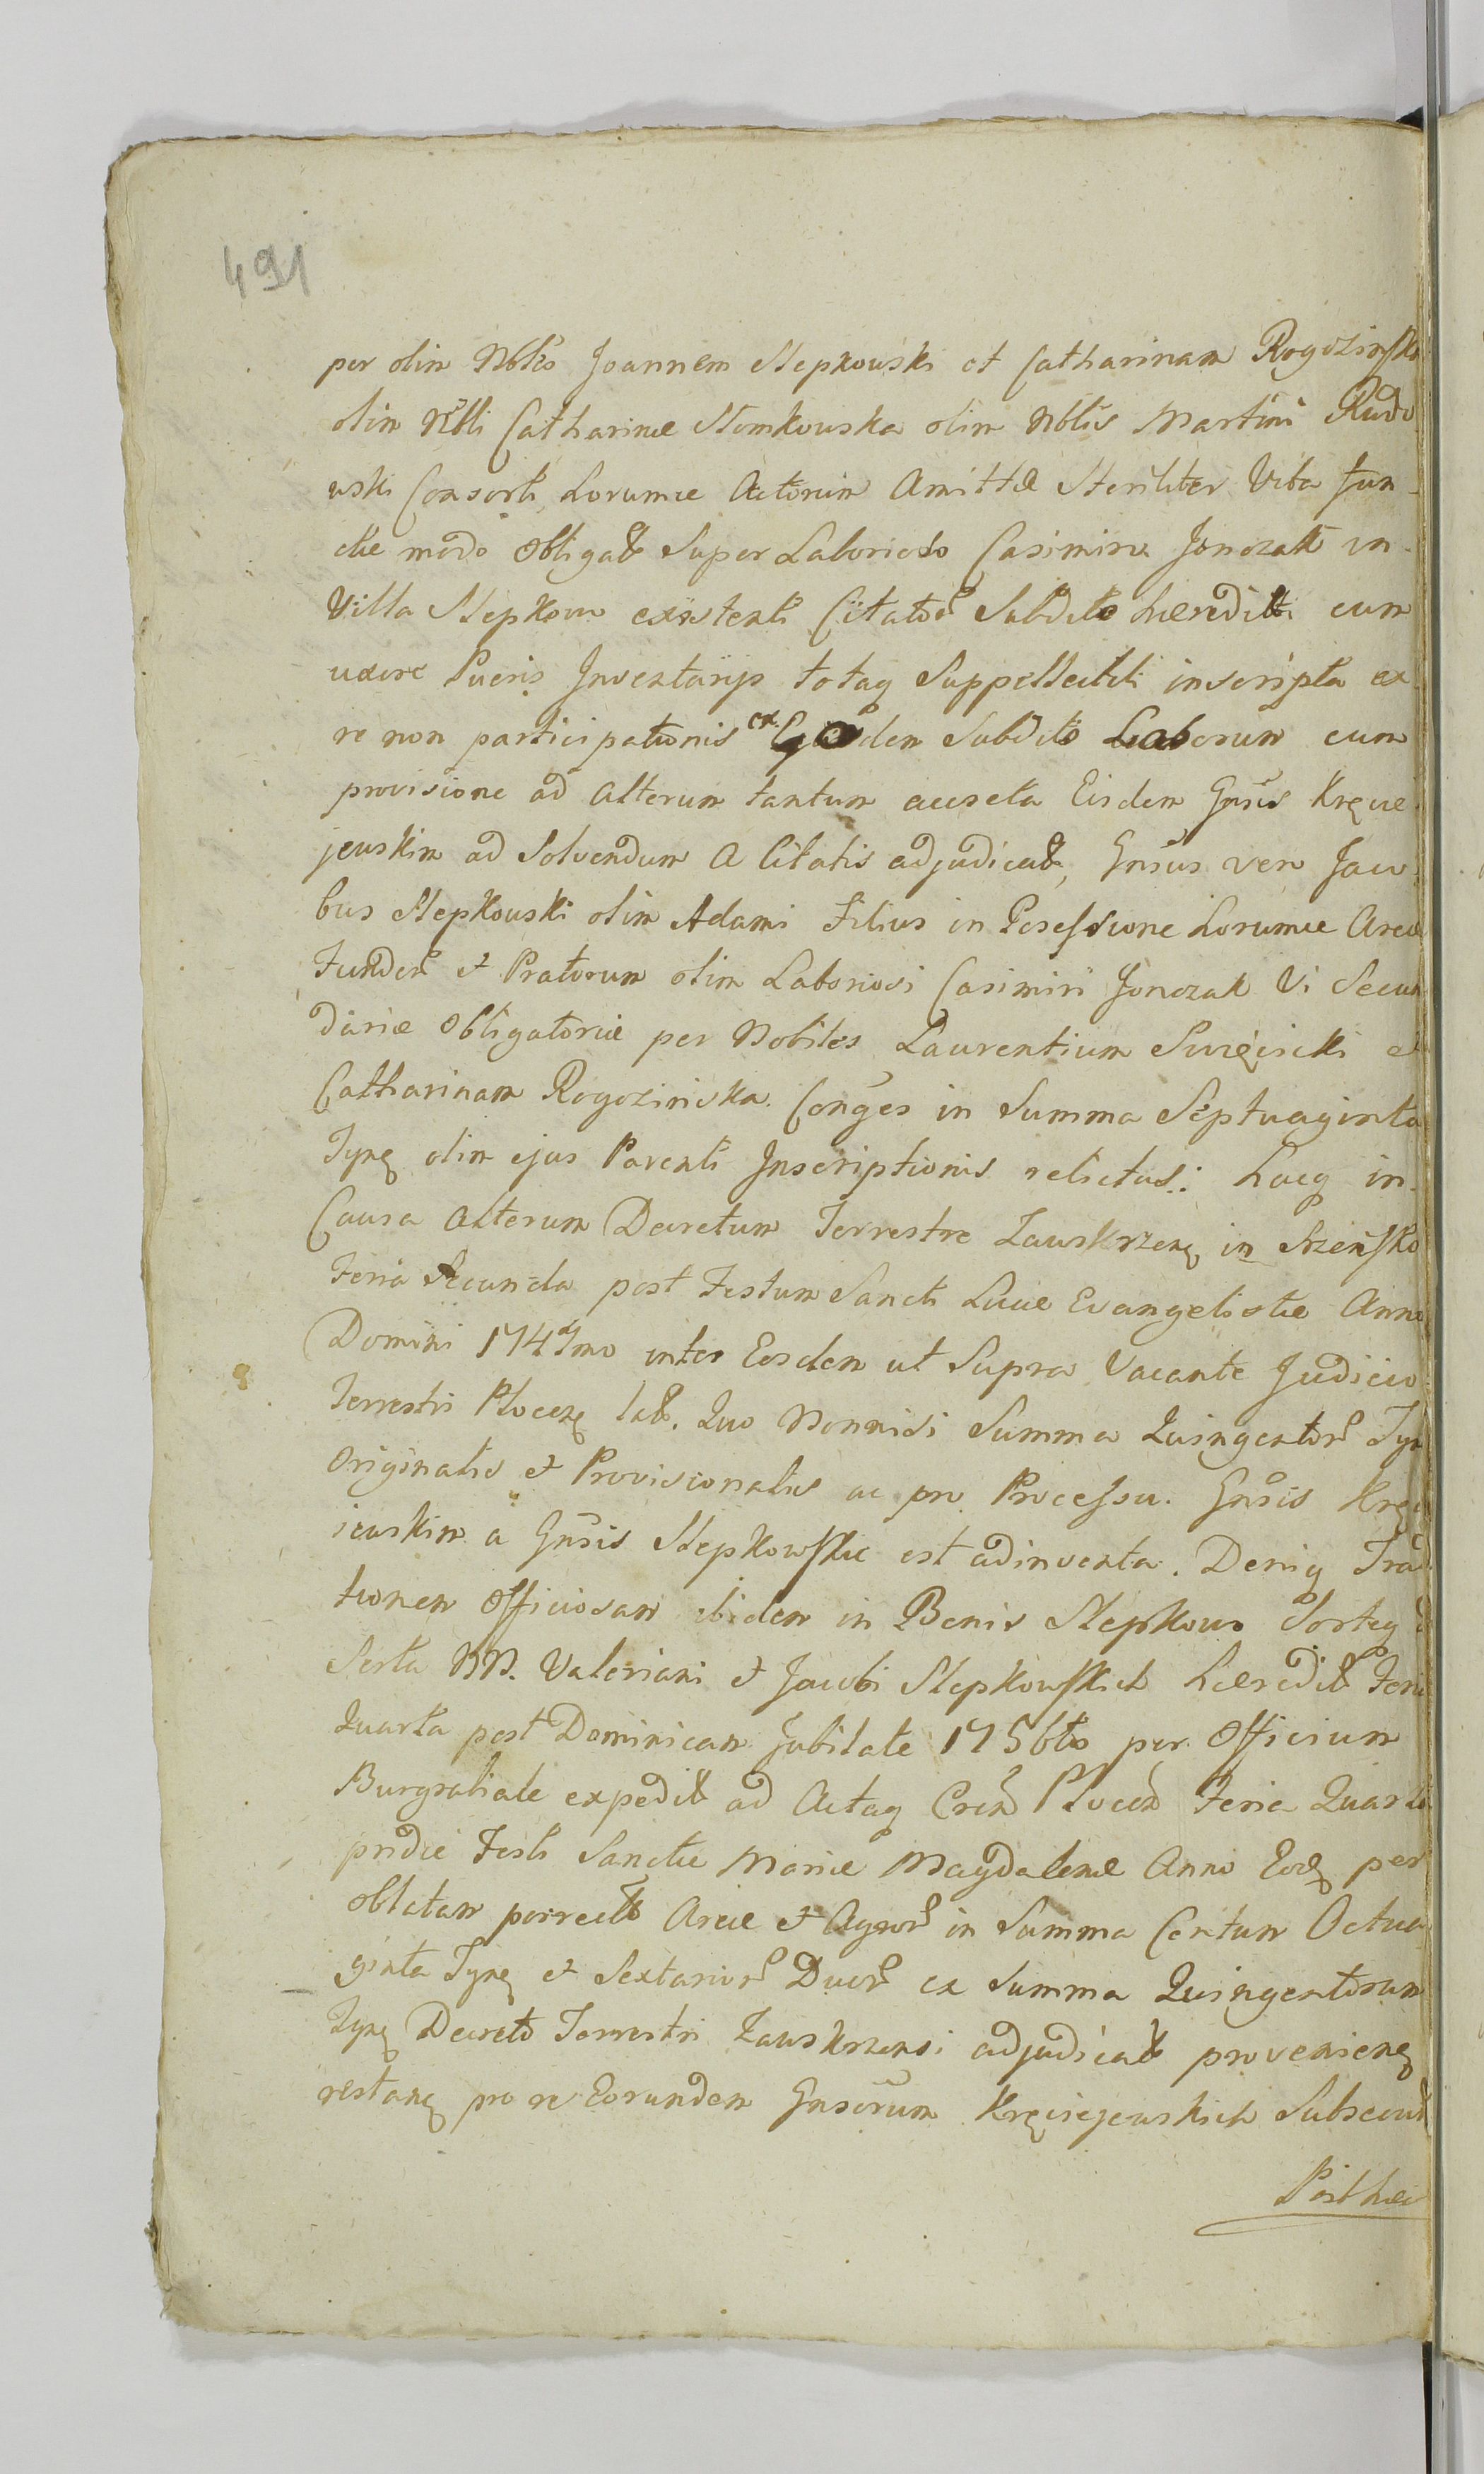 491
per olim Nobles Joannem Slepkowski et Catharinam Rogozinska
olim Nobli Catharinæ Slomkowska olim Noblis Martini Rudo
wski Consorti, horumce Actorum Amittæ Steriliter Vita fun-
ctæ modo obligat Super Laborioso Casimiro Jonczak in
Villa Slepkowo existenti Citator Subdito hæredit cum
uxore Pueris Inventarijs totaq Suppellectili inscripta ex
re non participationis ex Eodem Subdito Laborum cum
provisione ad alterum tantum aucseta Eisdem Gnsis Kręcie
jewskim ad Solvendum a Citatis adjudicat, Gnsus vero Jaco
bus Slepkowski olim Adami Filius in Posessione horumce Areæ
Fundor et Pratorum olim Laboriosi Casimiri Jonczak Vi Secun
dariæ obligatoriæ per Nobiles Laurentium Swięcicki et
Catharinam Rogozinska Conges in Summa Septuaginta
Tynf olim ejus Parenti Inscriptionis relictus: hacq in
Causa alterum Decretum Terrestre Zawskrzen in Szensko
Feria Secunda post Festum Sancti Lucæ Evangelistæ Anno
Domini 1747mo inter Eosdem ut Supra Vacante Judicio
Terrestri Plocen lat. Quo Nonnisi Summa Quingentor Tyn
Originalis et Provisionalis ac pro Processu Gnsis Kręci
iewskim a Gnsis Slepkowskie est adinventa. Deniq Trad
tionem Officiosam ibidem in Bonis Slepkowo Sorteq
Serta NN. Valeriani et Jacobi Slepkowskich hæredit Feria
Quarta post Dominicam Jubilate 1756to per Officium
Burgrabiale expedit ad Actaq Cren Plocen Feria Quarta
pridie Festi Sanctæ Mariæ Magdalenæ Anno Eod per
oblatam porrect Areæ et Agror in Summa Centum Octua
ginta Tynf et Sextarior Duor ex Summa Quingentorum
Tynf Decreto Terrestri Zawskrzensi adjudicat provenien
restan pro re Eorundem Gnsorum Kręciejewskich Subsecut
Post hæc